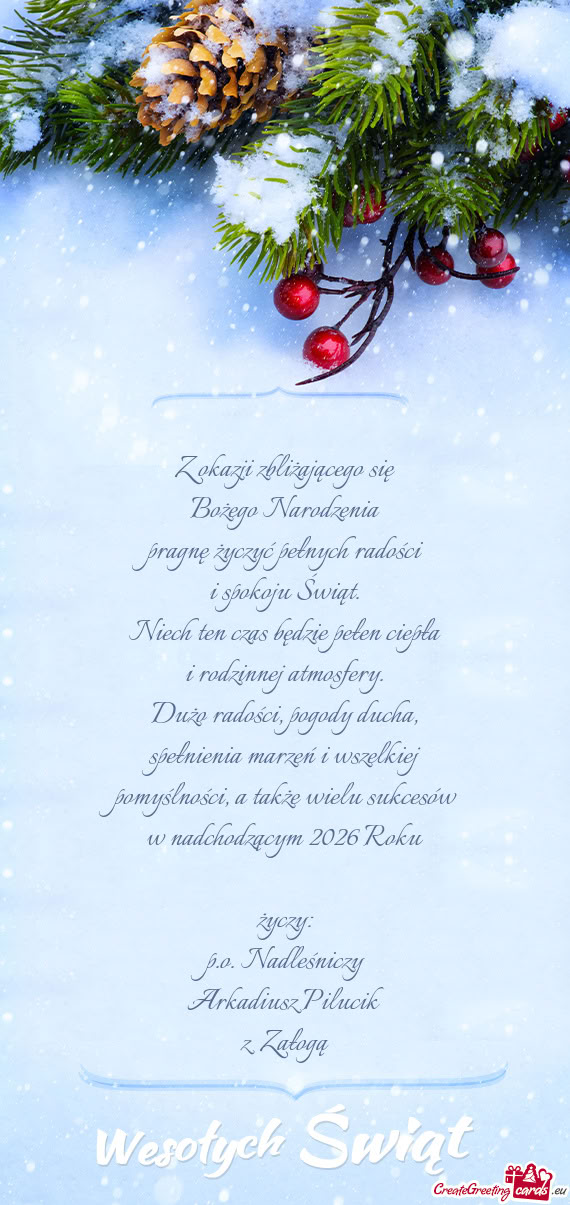 Z okazji zbliżającego się
Bożego Narodzenia
pragnę życzyć pełnych radości
i spokoju Świąt.
Niech ten czas będzie pełen ciepła
i rodzinnej atmosfery.
Dużo radości, pogody ducha,
spełnienia marzeń i wszelkiej
pomyślności, a także wielu sukcesów
w nadchodzącym 2026 Roku
życzy:
p.o. Nadleśniczy
Arkadiusz Pilucik
z Załogą
Wesołych Świąt
CreateGreetingcards.eu